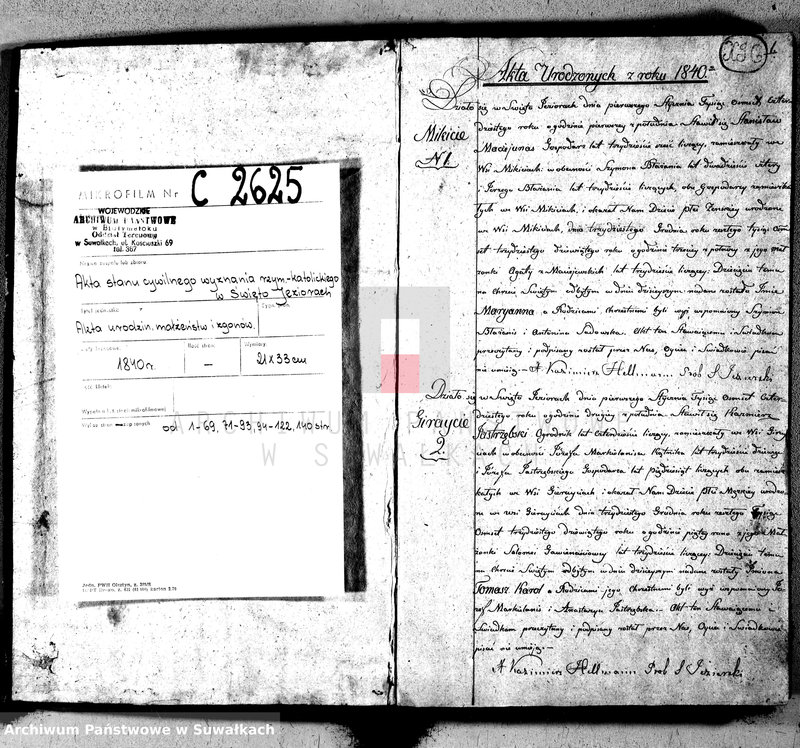 MIKROFILM Nr C 2625
WOJEWÓDZKIE
ARCHIWUM PAŃSTWOWE
w Białymstoku
Oddział Terenowy
w Suwałkach, ul. Kościuszki 69
tel. 367
Nazwa zespołu lub zbioru
Akta stanu cywilnego wyznania rzym-katolickiego
w Święto Jeziorach
Akta urodzin, małżeństw i zgonów.
Ilość stron: Wymiary:
1840 r. — 21x33cm
od 1-69, 71-93, 94-122, 140 str.
Akta Urodzonych z roku 1840
Mikicie
N 1
Działo się w Święto Jeziorach dnia pierwszego Stycznia Tysiąc Ośmset Czter
dziestego roku o godzinie pierwszy z południa Stawił się Stanisław
Maciejunas Gospodarz lat trzydzieście liczący, zamieszkały we
Wsi Mikiciach w obecności Szymona Błażania lat dwadzieścia cztery
i Jerzego Błażania lat trzydzieści liczących, oba Gospodarzy zamieszka
łych we Wsi Mikiciach, i okazał Nam Dziecie płci Żeńskiey urodzone
we Wsi Mikiciach, dnia trzydziestego Grudnia roku zeszłego tysiąc Oś
mset trzydziestego dziewiątego roku o godzinie trzeciey z północy z jego mał
żonki Agaty z Maciejewskich lat trzydzieści liczącey: Dziecięciu temu
na chrzcie Świętym odbytym w dniu dzisieyszym nadane zostało Imie
Maryanna a Rodzicami Chrzestnemi byli wyż wspomniony Szymon
Błażanis i Antonina Sadowska. Akt ten Stawającemu i Świadkom
przeczytany i podpisany został przez Nas, Oyciec i Świadkowie pisać
nie umieją. — X Kazimierz Hellmann Prob S Jeziorski
Giraycie
2
Działo się w Święto Jeziorach dnia pierwszego Stycznia Tysiąc Ośmset Czter
dziestego roku o godzinie drugiey z południa Stawił się Kazimierz
Jastrzębski Ogrodnik lat czterdzieści liczący, zamieszkały we Wsi Giray
ciach w obecności Józefa Markulanisa
i Józefa Jastrzębskiego Gospodarza lat pięćdziesiąt liczących obu zamiesz
kałych we Wsi Girayciach i okazał Nam Dziecie płci Męzkiey urodzo
ne w wsi Girayciach dnia trzydziestego Grudnia roku zeszłego Tysiąc
Ośmset trzydziestego dziewiątego roku o godzinie piątey rano z jego Mał
żonki Salomei lat trzydzieści liczącey: Dziecięciu temu
na chrzcie Świętym odbytym w dniu dzisieyszym nadane zostały Imiona
Tomasz Karol a Rodzicami jego Chrzestnemi byli wyż wspomniony Jó
zef Markulanis i Anastazya Jastrzębska. — Akt ten Stawającemu i
Świadkom przeczytany i podpisany został przez Nas, Oyciec i Świadkowie
pisać nie umieją. —
X Kazimierz Hellmann Prob S Jeziorski
ARCHIWUM PAŃSTWOWE
W SUWAŁKACH
Archiwum Państwowe w Suwałkach